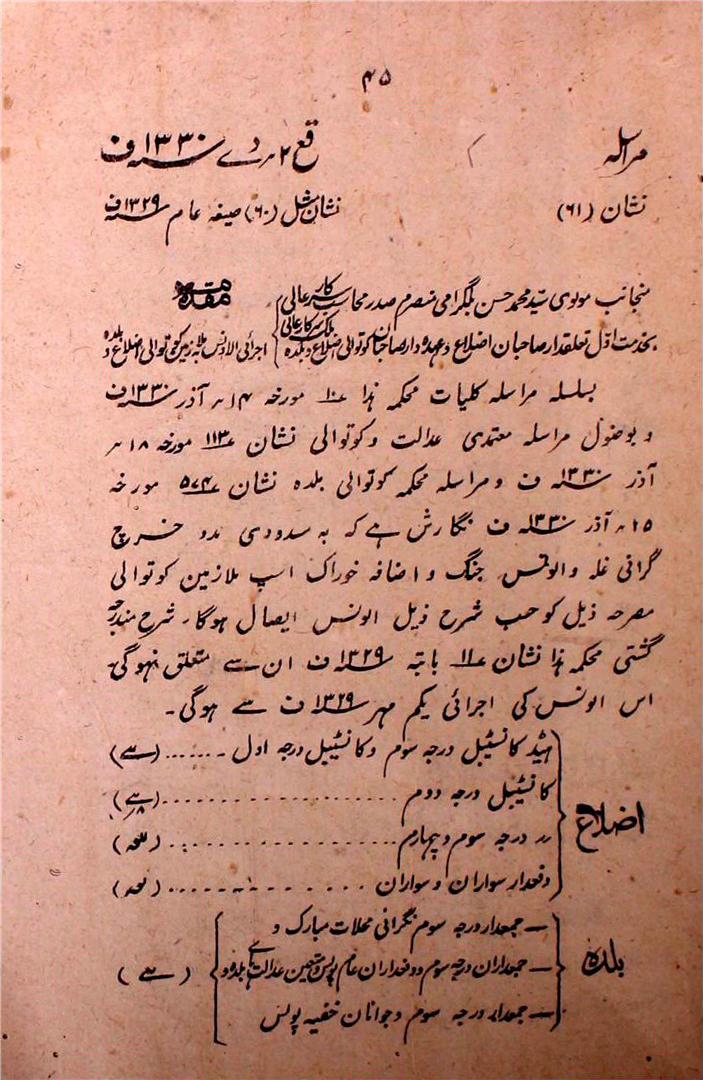 ۴۵
مراسلہ قع ۲ ؍ دے ۱۳۳۰ ف
نشان (۶۱) نشان مثل (۶۰) صیغہ عام ۱۳۲۹ ف
منجانب مولوی سید محمد حسن بلگرامی منصرم صدر محاسب سرکار عالی
مقدمہ
بخدمت اول تعلقدار صاحبان اضلاع و عہدہ دار صاحبان کوتوالی اضلاع و بلدہ ملک سرکار عالی
اجرائی الاونس ملازمین کوتوالی اضلاع و بلدہ
بسلسلہ مراسلہ کلیات محکمہ ہذا ۱۰ مورخہ ۱۴ ؍ آذر ۱۳۳۰ ف
و بوصول مراسلہ معتمدی عدالت و کوتوالی نشان ۱۱۳ مورخہ ۱۸ ؍
آذر ۱۳۳۰ ف و مراسلہ محکمہ کوتوالی بلدہ نشان ۵۷۴ مورخہ
۱۵ ؍ آذر ۱۳۳۰ ف نگارش ہے کہ بہ مسدودی مدد خرچ
گرانی غلہ و الونس جنگ و اضافہ خوراک اسپ ملازمین کوتوالی
مصرحہ ذیل کو حسب شرح ذیل الونس ایصال ہوگا۔ شرح مندرجہ
گشتی محکمہ ہذا نشان ۱۱ بابتہ ۱۳۲۹ ف ان سے متعلق نہوگی
اس الونس کی اجرائی یکم مہر ۱۳۲۹ ف سے ہوگی۔
اضلاع
ہیڈ کانسٹیبل درجہ سوم و کانسٹیبل درجہ اول .......
کانسٹیبل درجہ دوم ....................
؍؍ درجہ سوم و چہارم ....................
دفعدار سواران و سواران ....................
بلدہ
— جمعدار درجہ سوم نگرانی محلات مبارک و
— جمعداران درجہ سوم و دفعداران عام پولس و متعین عدالت ہائے بلدہ و
— جمعدار درجہ سوم و جوانان خفیہ پولس